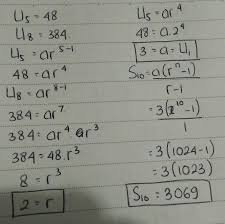 U₅ = 48
U₈ = 384.
U₅ = ar⁵⁻¹
48 = ar⁴
U₈ = ar⁸⁻¹
384 = ar⁷
384 = ar⁴ . ar³
384 = 48 . r³
8 = r³
2 = r
U₅ = ar⁴
48 = a . 2⁴
3 = a = U₁
S₁₀ = a(rⁿ-1)
r-1
= 3(2¹⁰-1)
1
= 3(1024-1)
= 3(1023)
S₁₀ = 3069